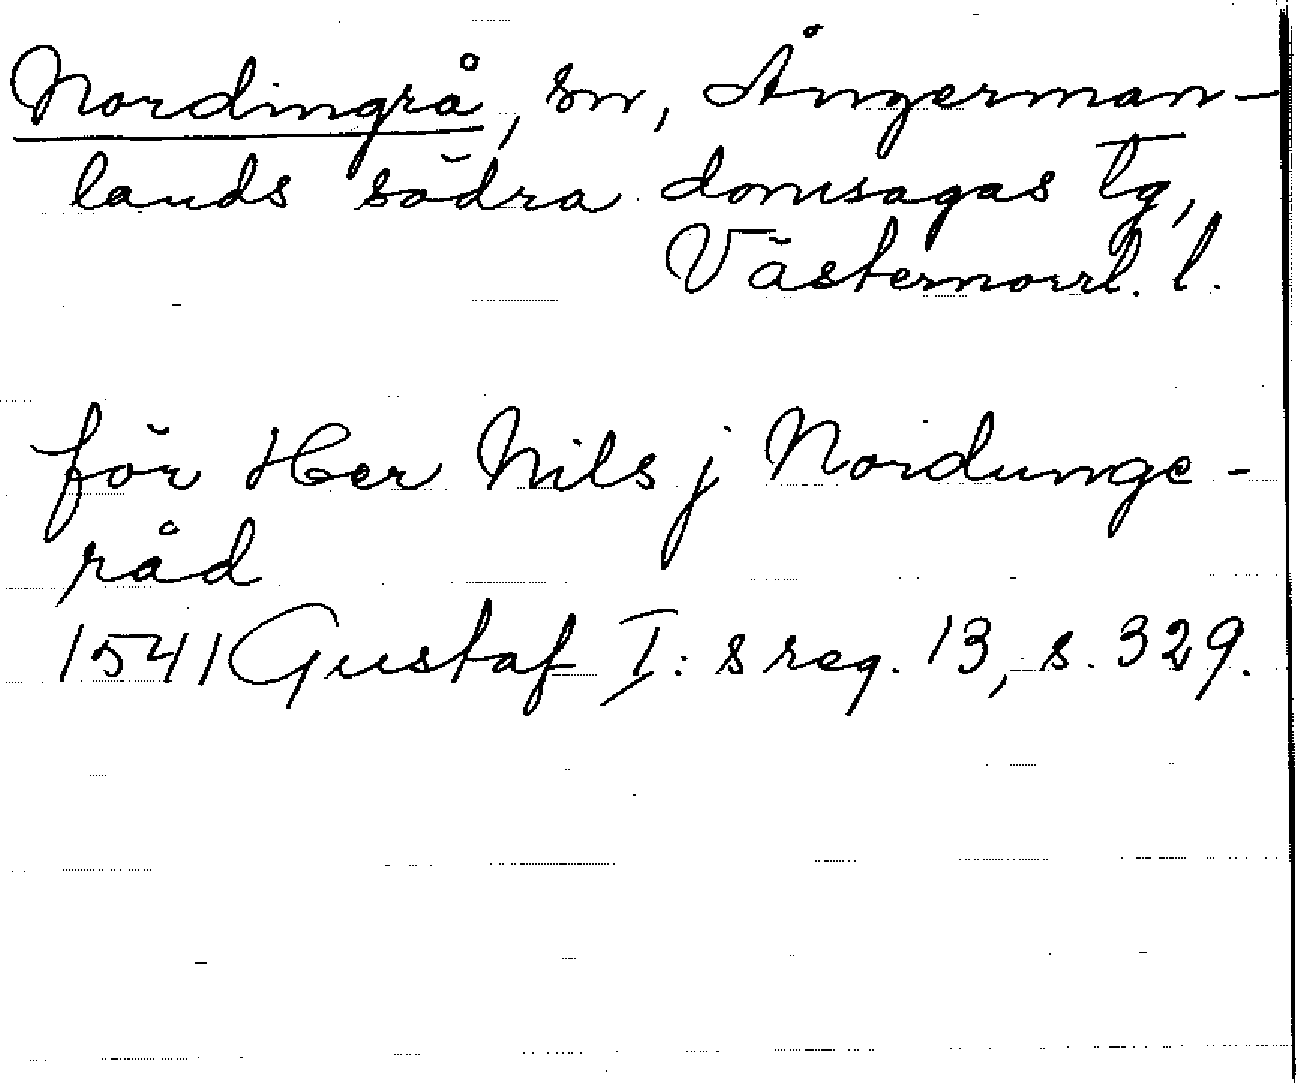 Nordingrå, sn, Ångerman-
lands södra domsagas tg,
Västernorrl. l.
för Her Nils j Nordunge-
råd
1541 Gustaf I:s reg. 13, s. 329.